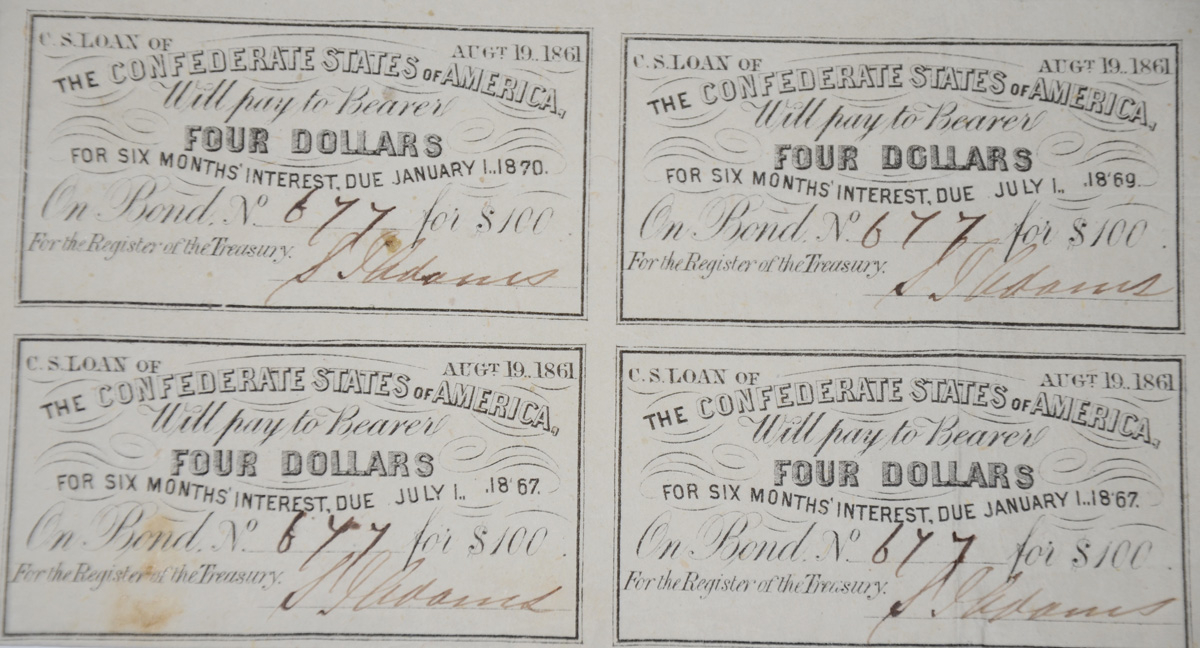 C. S. LOAN OF AUGT 19.. 1861
THE CONFEDERATE STATES OF AMERICA,
Will pay to Bearer
FOUR DOLLARS
FOR SIX MONTHS' INTEREST, DUE JANUARY 1.. 1870.
On Bond. No. 677 for $100
For the Register of the Treasury.
S J Adams
C. S. LOAN OF AUGT 19.. 1861
THE CONFEDERATE STATES OF AMERICA,
Will pay to Bearer
FOUR DOLLARS
FOR SIX MONTHS' INTEREST, DUE JULY 1.. .18'69.
On Bond. No. 677 for $100
For the Register of the Treasury.
S J Adams
C. S. LOAN OF AUGT 19.. 1861
THE CONFEDERATE STATES OF AMERICA,
Will pay to Bearer
FOUR DOLLARS
FOR SIX MONTHS' INTEREST, DUE JULY 1.. .18'67.
On Bond. No. 677 for $100
For the Register of the Treasury.
S J Adams
C. S. LOAN OF AUGT 19.. 1861
THE CONFEDERATE STATES OF AMERICA,
Will pay to Bearer
FOUR DOLLARS
FOR SIX MONTHS' INTEREST, DUE JANUARY 1.. 18'67.
On Bond. No. 677 for $100
For the Register of the Treasury.
S J Adams